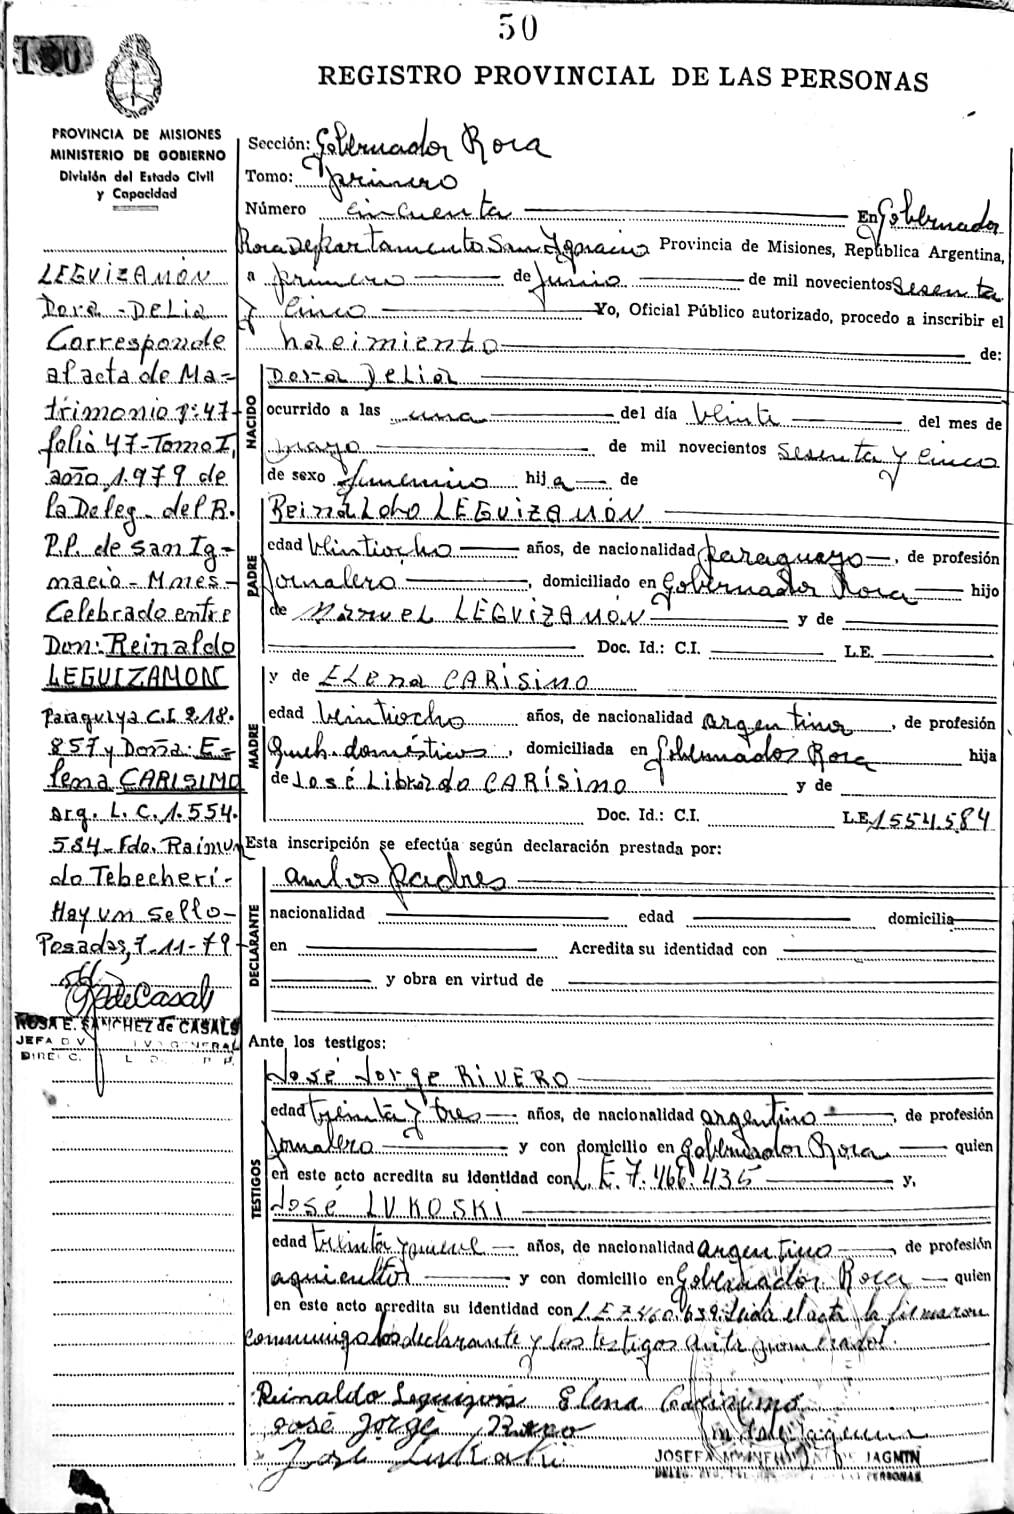 50
REGISTRO PROVINCIAL DE LAS PERSONAS
PROVINCIA DE MISIONES
MINISTERIO DE GOBIERNO
División del Estado Civil
y Capacidad
LEGUIZAMÓN
Dora - DeLia
Corresponde
al acta de Ma-
trimonio nº 47
folia 47 - Tomo I,
año 1.979 de
la Deleg. del R.
P.P. de San Ig-
nacio - Mnes -
Celebrado entre
Don: Reinaldo
LEGUIZAMON
paraguya C.I 218.
857 y Doña: E-
lena CARISIMO
arg. L. C. 1.554.
584 - Fdo. Raimun
do Tebecheri -
Hay un sello -
Posadas, 7-11-79
ROSA E. SANCHEZ de CASALS
Sección: Gobernador Roca
Tomo: primero
Número cincuenta En Gobernador
Roca Departamento San Ignacio Provincia de Misiones, República Argentina,
a primero de junio de mil novecientos sesenta
y cinco Yo, Oficial Público autorizado, procedo a inscribir el
nacimiento de:
NACIDO
Dora Delia
ocurrido a las una del día veinte del mes de
mayo de mil novecientos sesenta y cinco
de sexo femenino hija de
PADRE
Reinaldo LEGUIZAMÓN
edad veintiocho años, de nacionalidad paraguayo, de profesión
jornalero, domiciliado en Gobernador Roca hijo
de Manuel LEGUIZAMÓN y de
Doc. Id.: C.I. L.E.
MADRE
y de ELena CARÍSIMO
edad veintiocho años, de nacionalidad argentina, de profesión
queh. domésticos, domiciliada en Gobernador Roca hija
de José Librado CARÍSIMO y de
Doc. Id.: C.I. L.E. 1554584
Esta inscripción se efectúa según declaración prestada por:
DECLARANTE
ambos padres
nacionalidad edad domicilia
en Acredita su identidad con
y obra en virtud de
Ante los testigos:
TESTIGOS
José Jorge RIVERO
edad treinta y tres años, de nacionalidad argentino, de profesión
jornalero y con domicilio en Gobernador Roca quien
en este acto acredita su identidad con L.E. 7.466.435 y,
José LUKOSKI
edad treinta y nueve años, de nacionalidad argentino, de profesión
agricultor y con domicilio en Gobernador Roca quien
en este acto acredita su identidad con L.E. 7.460.639. Leída el acta la firmaron
conmmigo los declarante y los testigos
Reinaldo Leguizamón Elena Carísimo
José Jorge Rivero
José Lukoski
JOSEFA DE JAGMIN